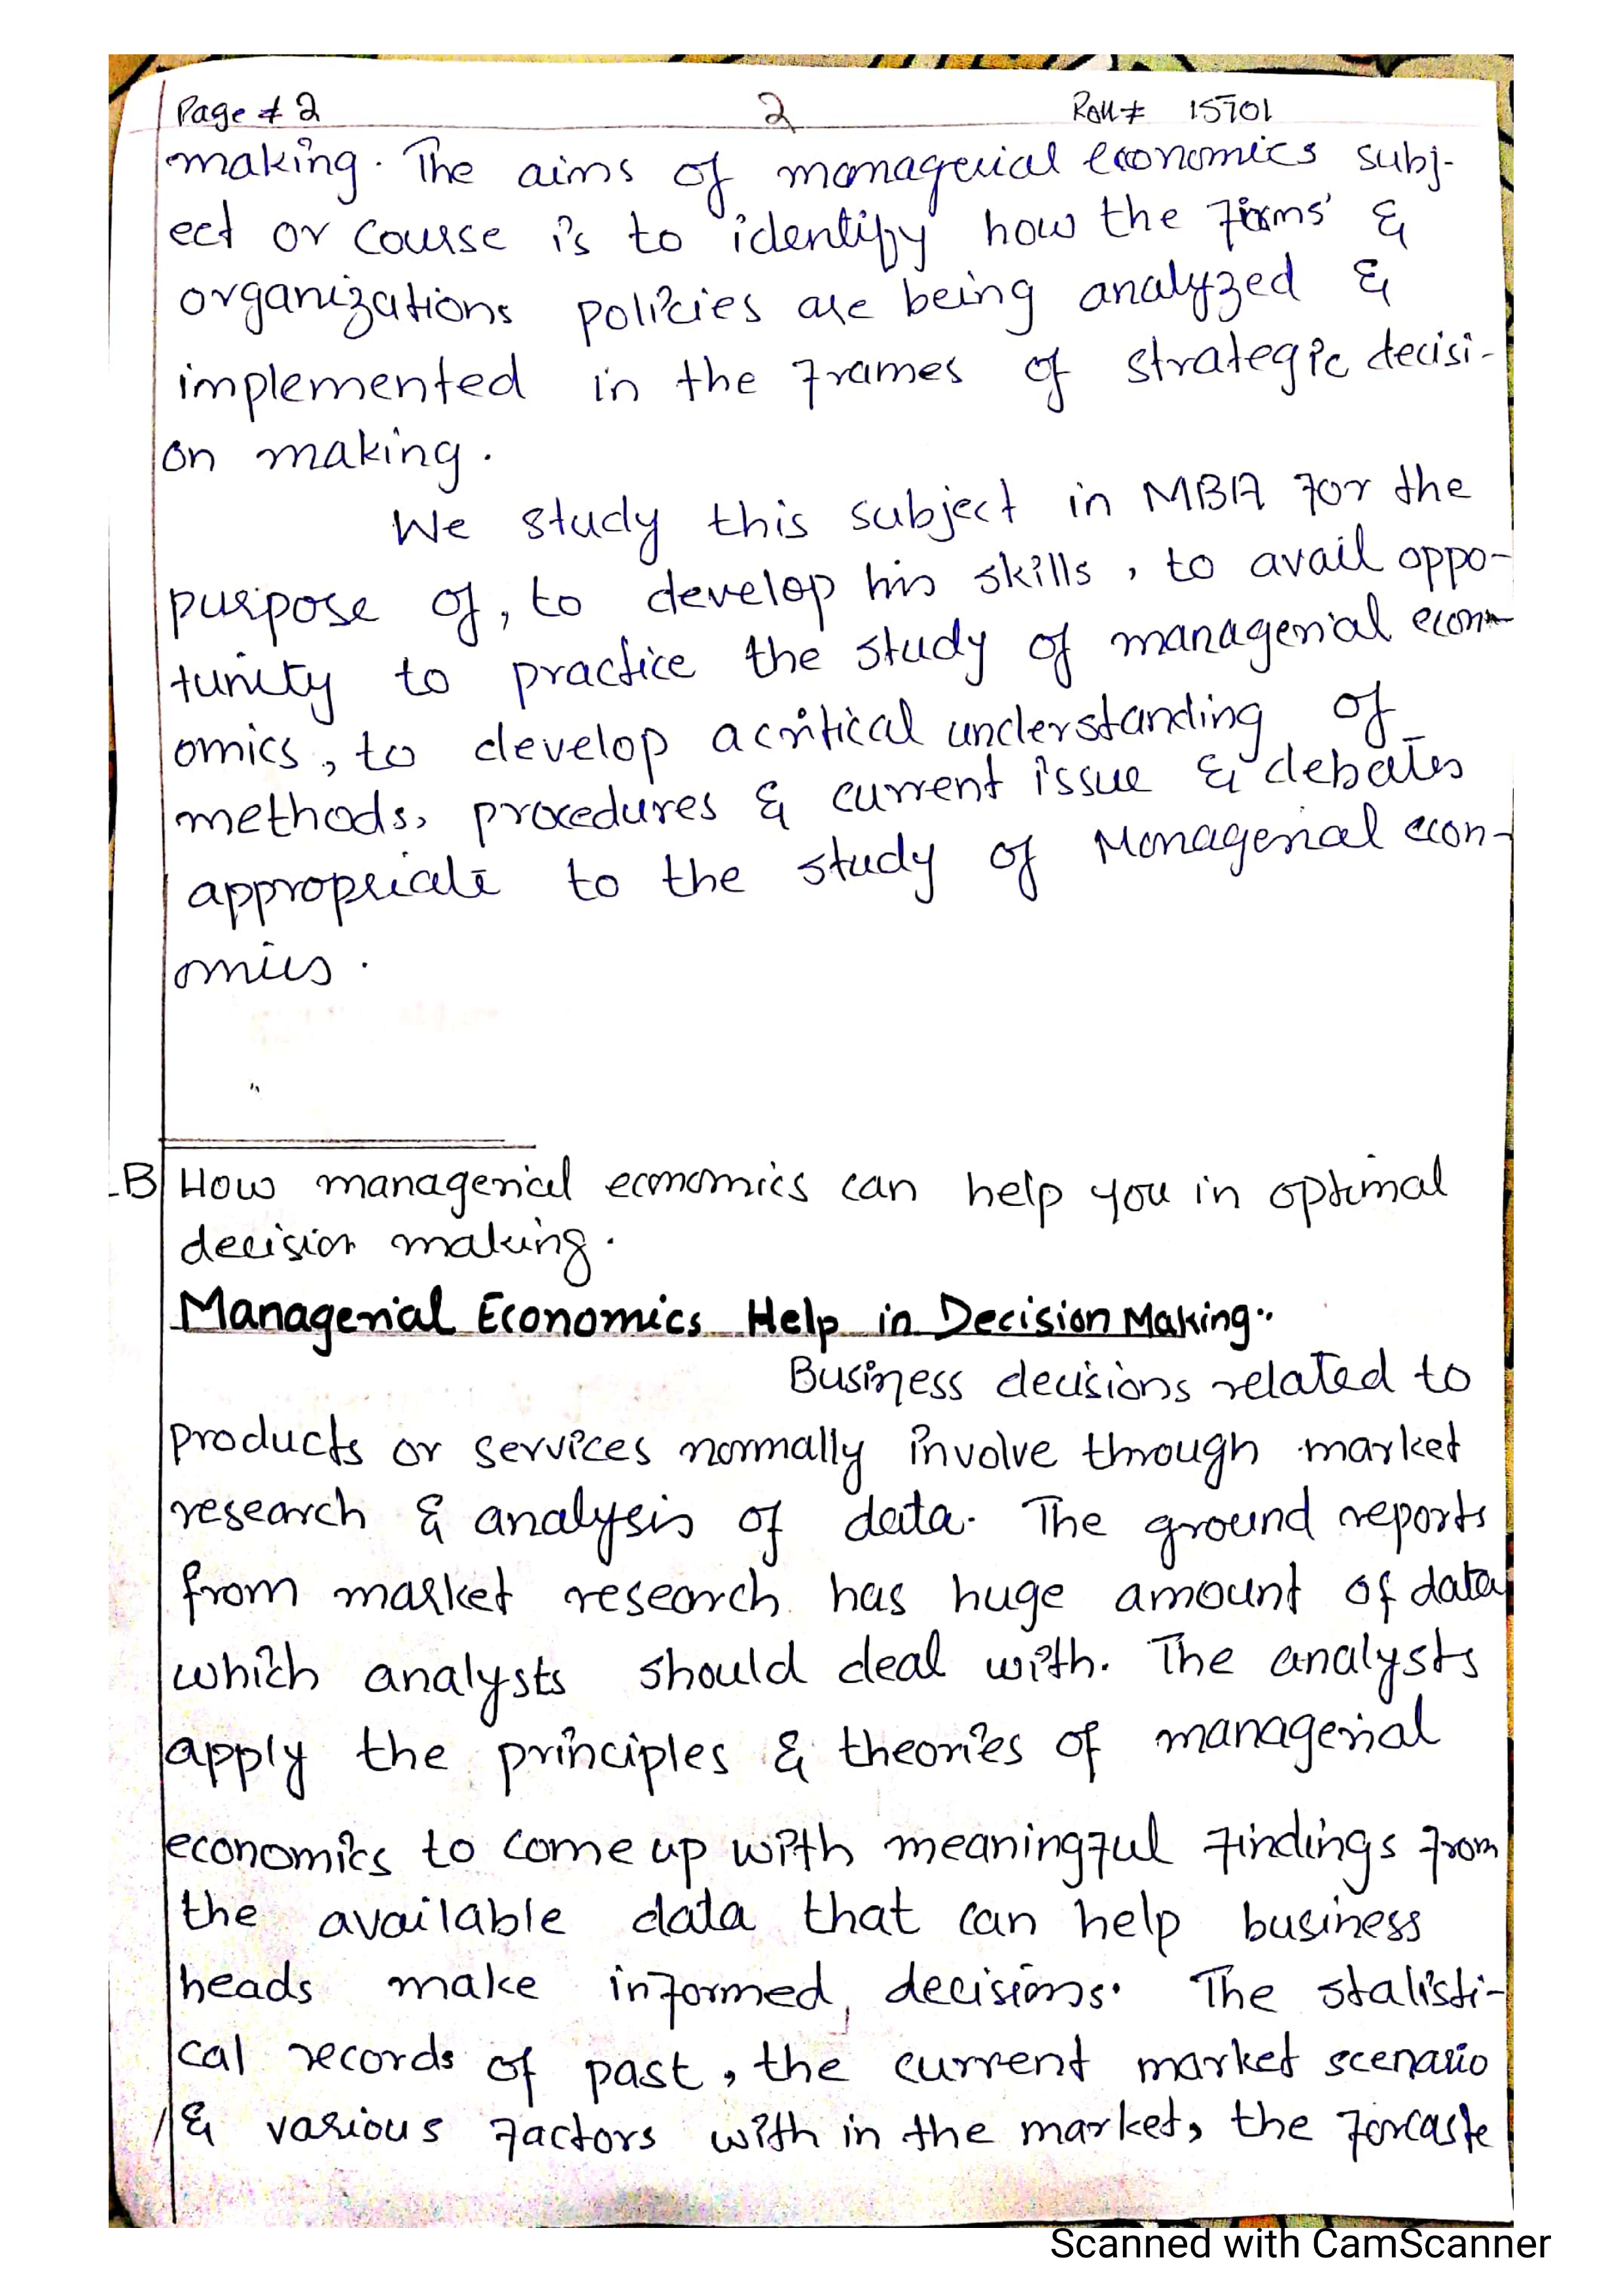 Page # 2 2 Roll # 15701
making. The aims of managerial economics subj-
ect or course is to identify how the firms' &
organizations policies are being analyzed &
implemented in the frames of strategic decisi-
on making.
We study this subject in MBA for the
purpose of, to develop his skills, to avail oppo-
tunity to practice the study of managerial econ-
omics, to develop a critical understanding of
methods, procedures & current issue & debates
appropriate to the study of Managerial econ-
omics.
B How managerial economics can help you in optimal
decision making.
Managerial Economics Help in Decision Making:
Business decisions related to
products or services normally involve through market
research & analysis of data. The ground reports
from market research has huge amount of data
which analysts should deal with. The analysts
apply the principles & theories of managerial
economics to come up with meaningful findings from
the available data that can help business
heads make informed decisions. The statisti-
cal records of past, the current market scenario
& various factors with in the market, the forcaste
Scanned with CamScanner